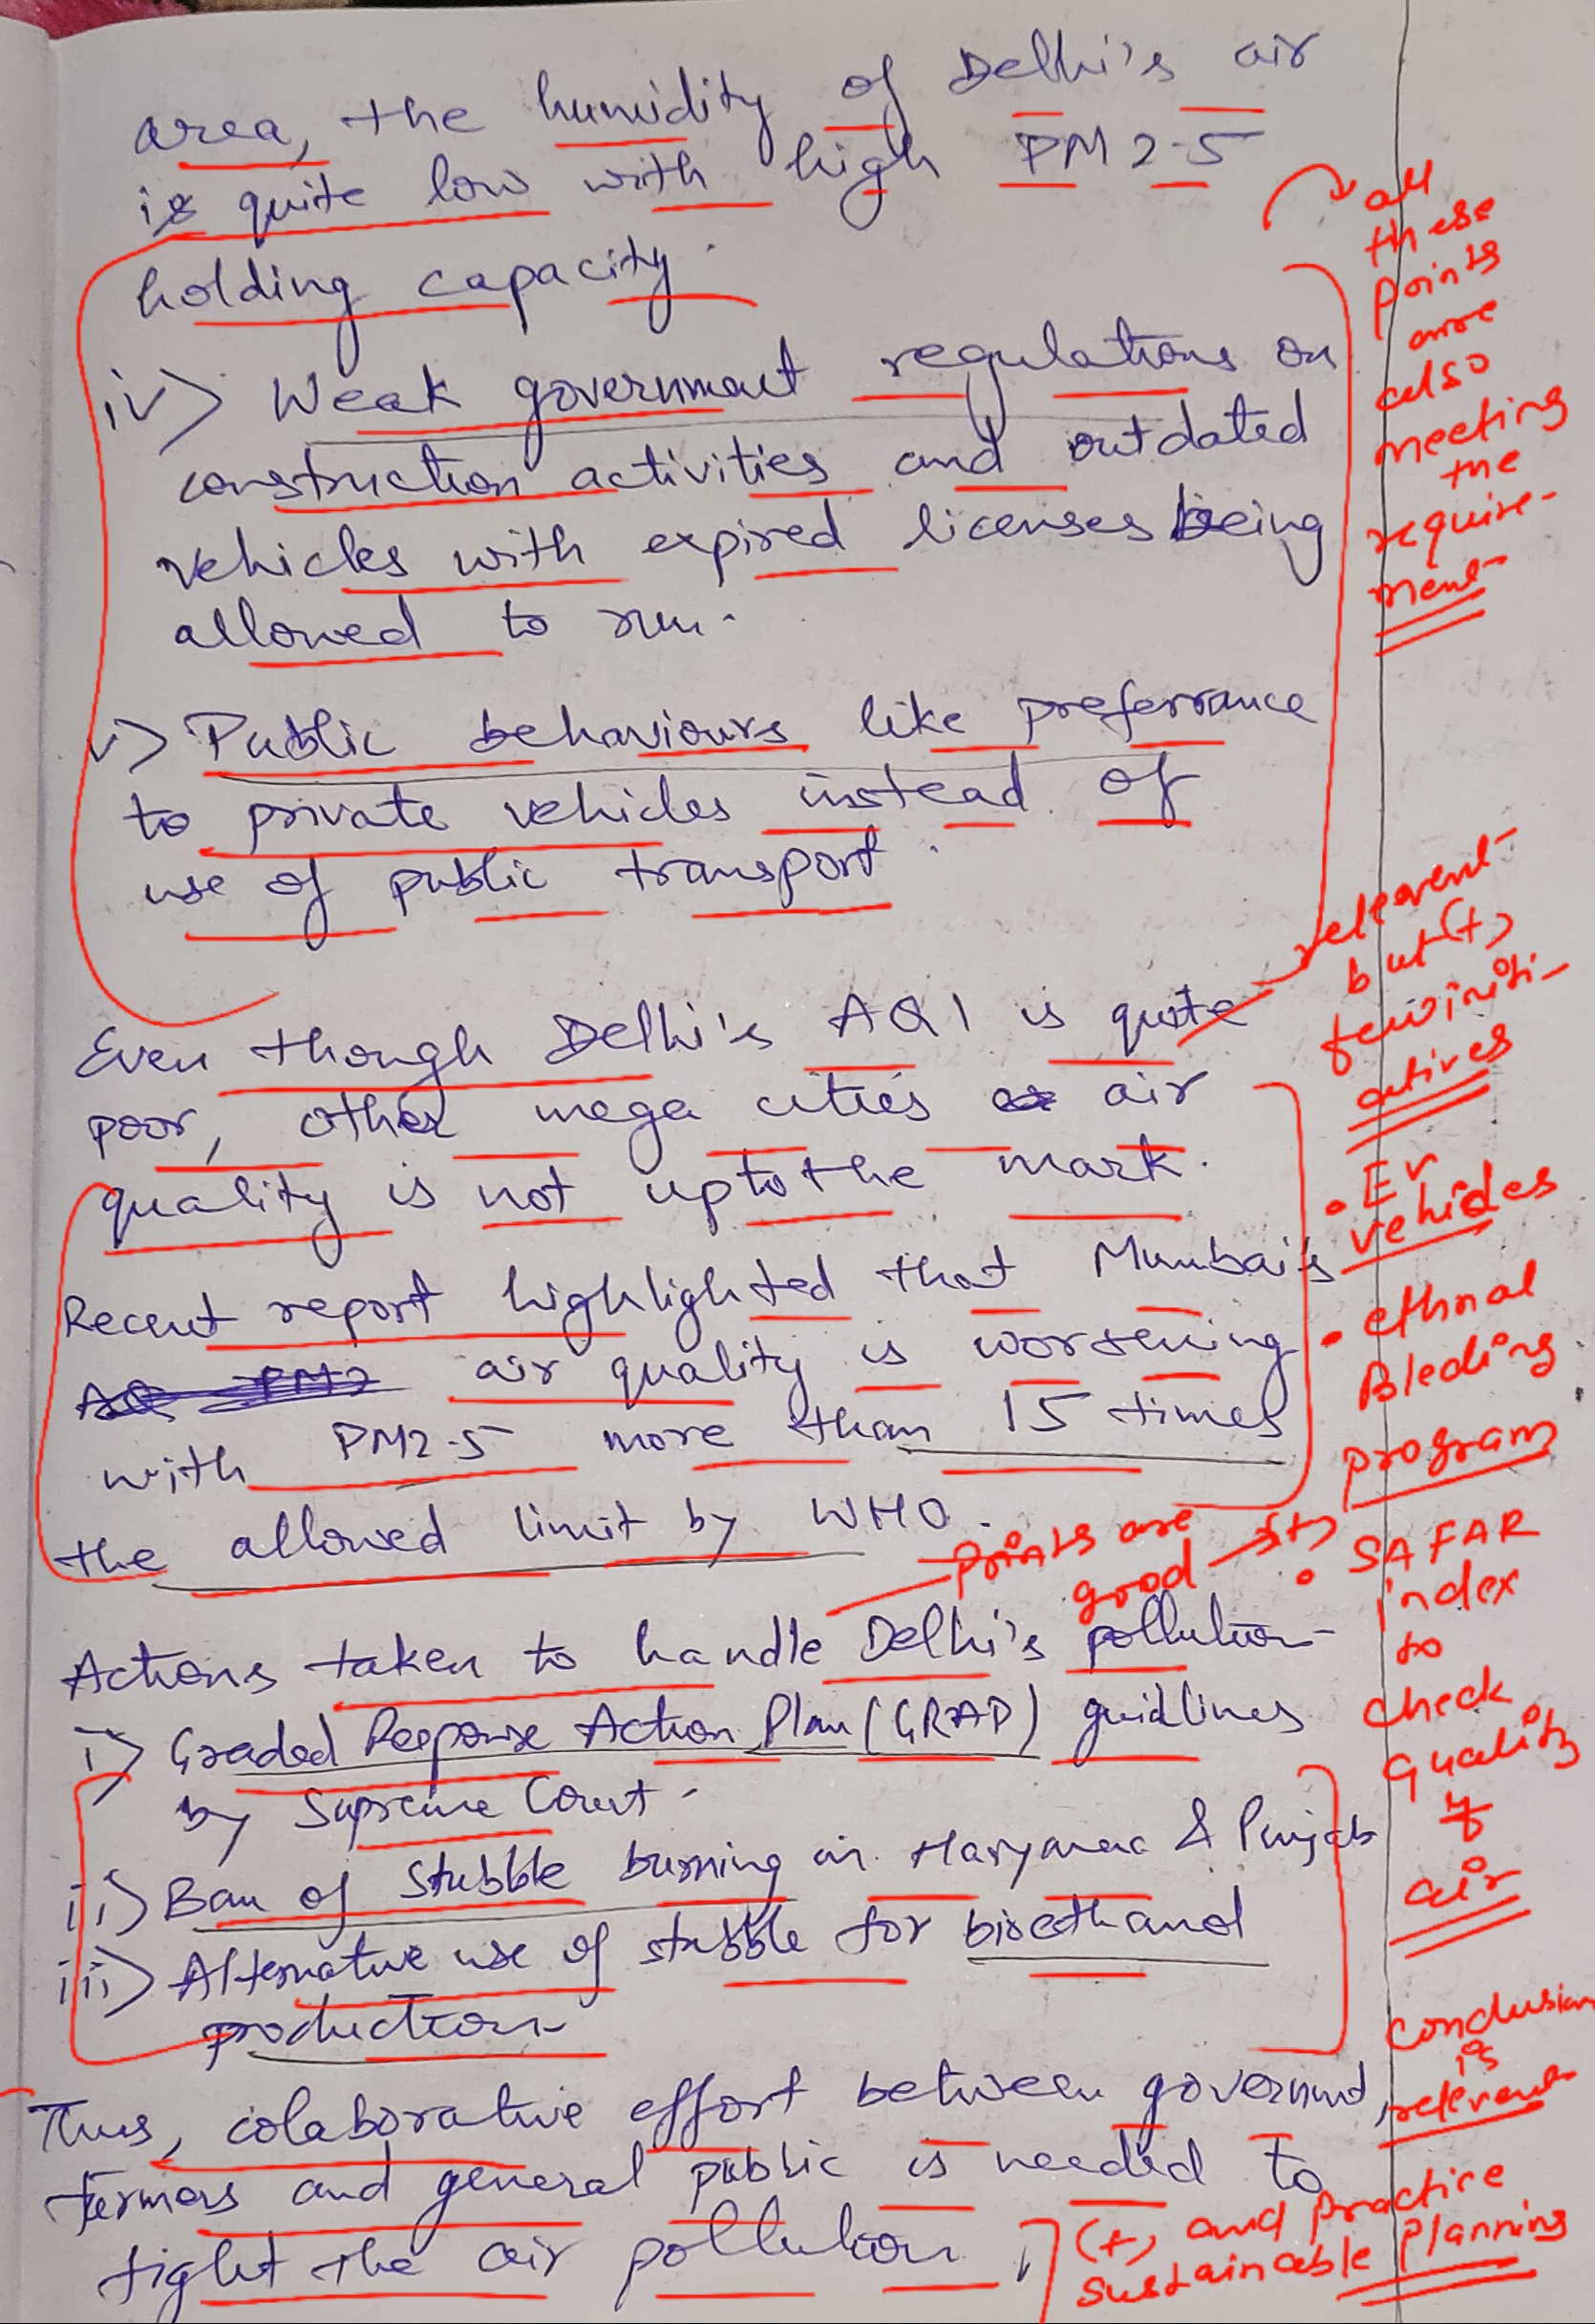 area, the humidity of Delhi's air
is quite low with high PM 2.5
holding capacity.
iv) Weak government regulations on
construction activities and outdated
vehicles with expired licenses being
allowed to run.
v) Public behaviours like preferrance
to private vehicles instead of
use of public transport.
all
these
points
are
also
meeting
the
require-
ment
Even though Delhi's AQI is quite
poor, other mega cities air
quality is not upto the mark.
Recent report highlighted that Mumbai's
air quality is worsening
with PM2.5 more than 15 times
the allowed limit by WHO.
relevent
but (+)
few initi-
atives
• EV
vehicles
• ethnal
Bleding
program
• SAFAR
index
to
check
quality
of
air
points are
good (+)
Actions taken to handle Delhi's pollution-
i) Graded Response Action Plan (GRAP) guidlines
by Supreme Court.
ii) Ban of stubble burning in Haryana & Punjab
iii) Alternative use of stubble for bioethanol
production
Thus, colaborative effort between governmnt,
farmers and general public is needed to
fight the air pollution.
Conclusion
is
relevent
(+) and practice
sustainable planning